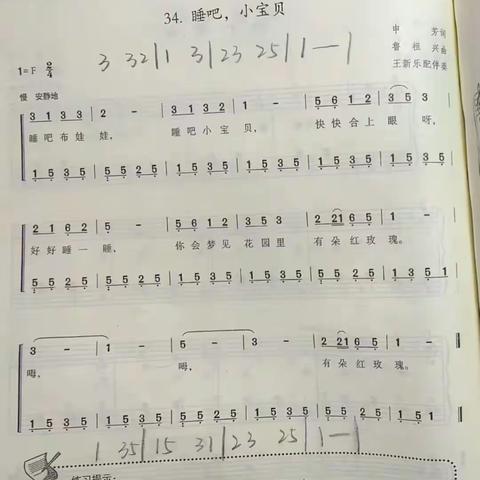 34. 睡吧，小宝贝
申 芳词
鲁祖兴曲
王新乐配伴奏
3 32|1 3|23 25|1—|
1=F 2/4
慢 安静地
3 1 3 3 | 2 - | 3 1 3 2 | 1 - | 5 6 1 2 | 3 5 3
睡吧布娃娃， 睡吧小宝贝， 快快合上眼呀，
1 5 3 5 | 1 5 3 5 | 5 5 2 5 | 5 5 2 5 | 1 5 3 5 | 1 5 3 5 | 1 5 3 5
2 1 6 2 | 5 - | 5 6 1 2 | 3 5 3 | 2 21 6 5 | 1 -
好好睡一睡， 你会梦见花园里 有朵红玫瑰。
5 5 2 5 | 5 5 2 5 | 1 5 3 5 | 1 5 3 5 | 5 5 2 5 | 1 3 5 1
3 - | 1 - | 5 - | 3 - | 2 21 6 5 | 1 -
呣， 呣， 有朵红玫瑰。
1 5 3 5 | 1 5 3 5 | 1 5 3 5 | 1 5 3 5 | 5 5 2 5
1 35|15 31|23 25|1—|
练习提示：